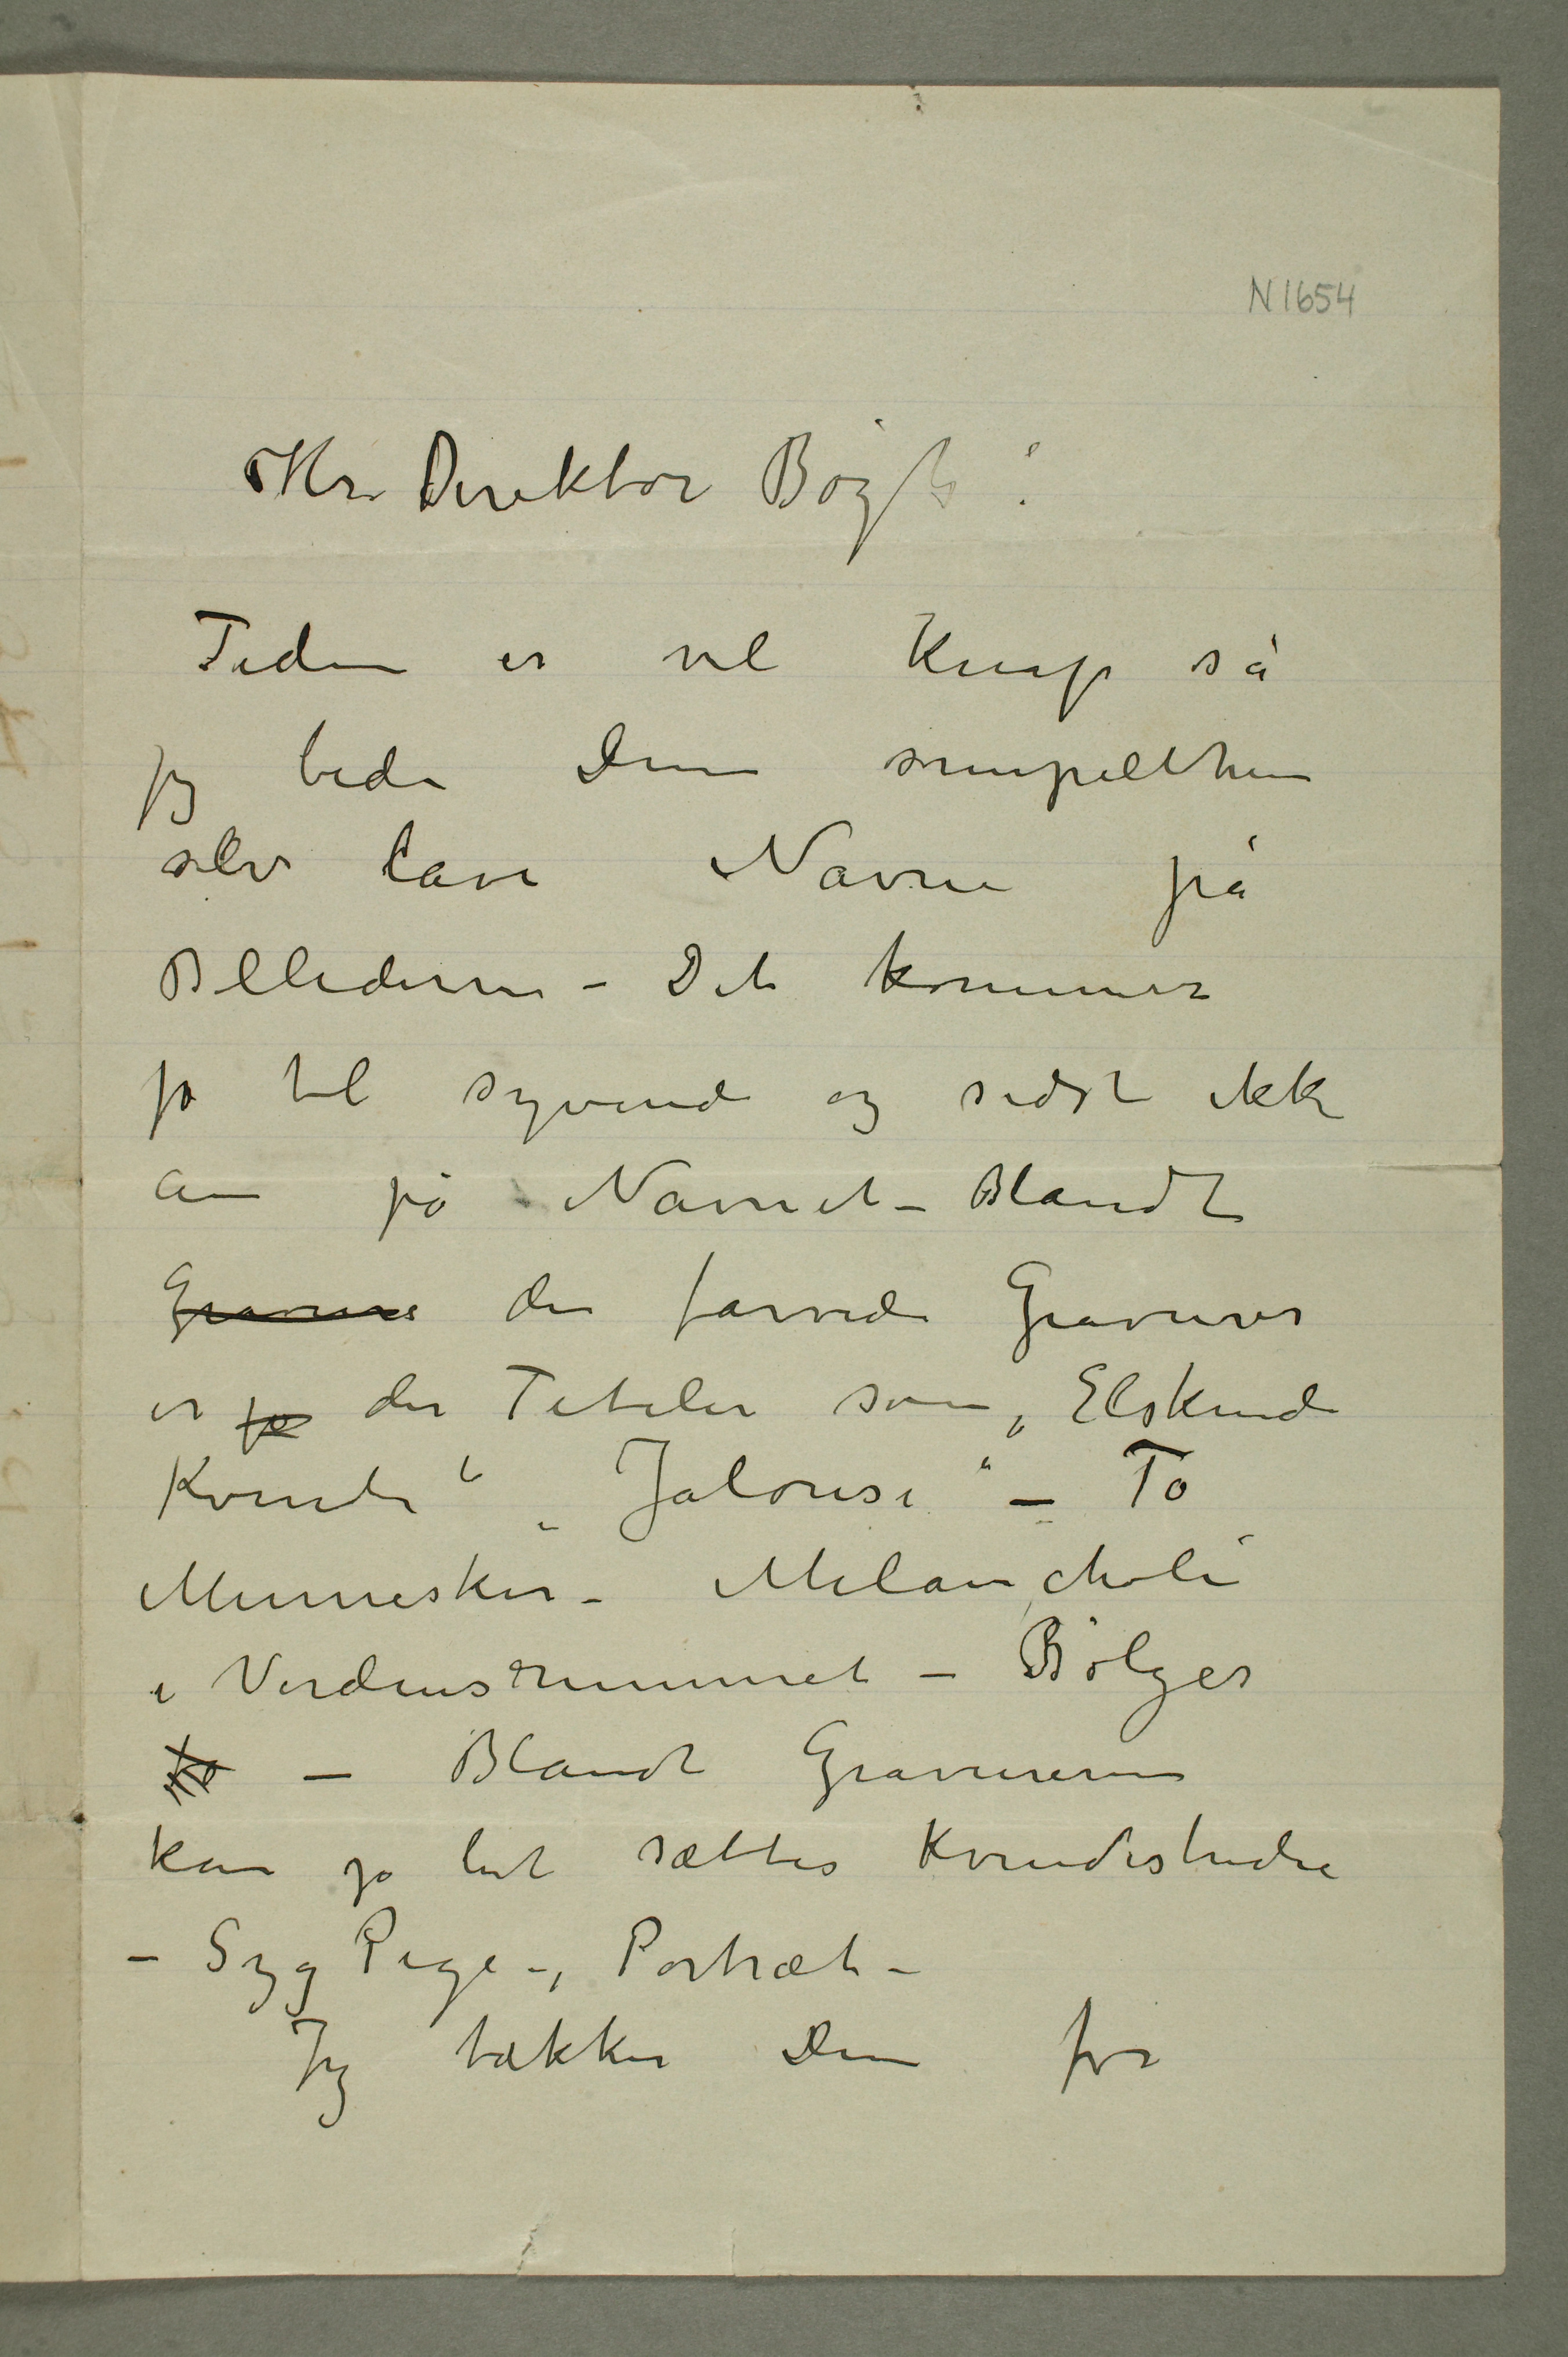 N 1654
Hr. Direktør Bøgh!
Tiden er vel knap så
jeg beder Dem simpelthen
selv lave Navne på
Billederne – Det kommer
jo til syvende og sidst ikke
an på Navnet – Blandt
Gravures de farvede Gravurer
er jo der Titeler som „Elskende
Kvinde“ „Jalousi“ – To
Mennesker – Melancholi
i Verdensrummet – Bølger
to – Blandt Gravurerne
kan jo let sættes Kvindestudie
– Syg Pige –, Portræt –
Jeg takker Dem for